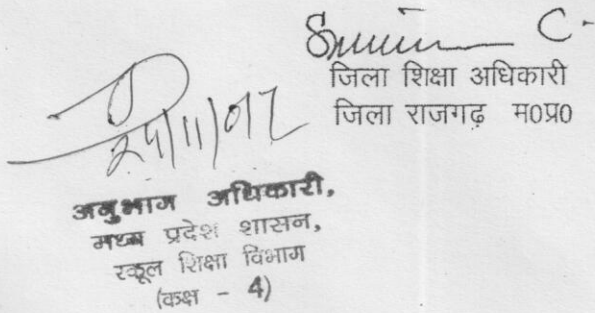 जिला शिक्षा अधिकारी
जिला राजगढ़ म0प्र0
अनुभाग अधिकारी,
मध्य प्रदेश शासन,
स्कूल शिक्षा विभाग
(कक्ष - 4)